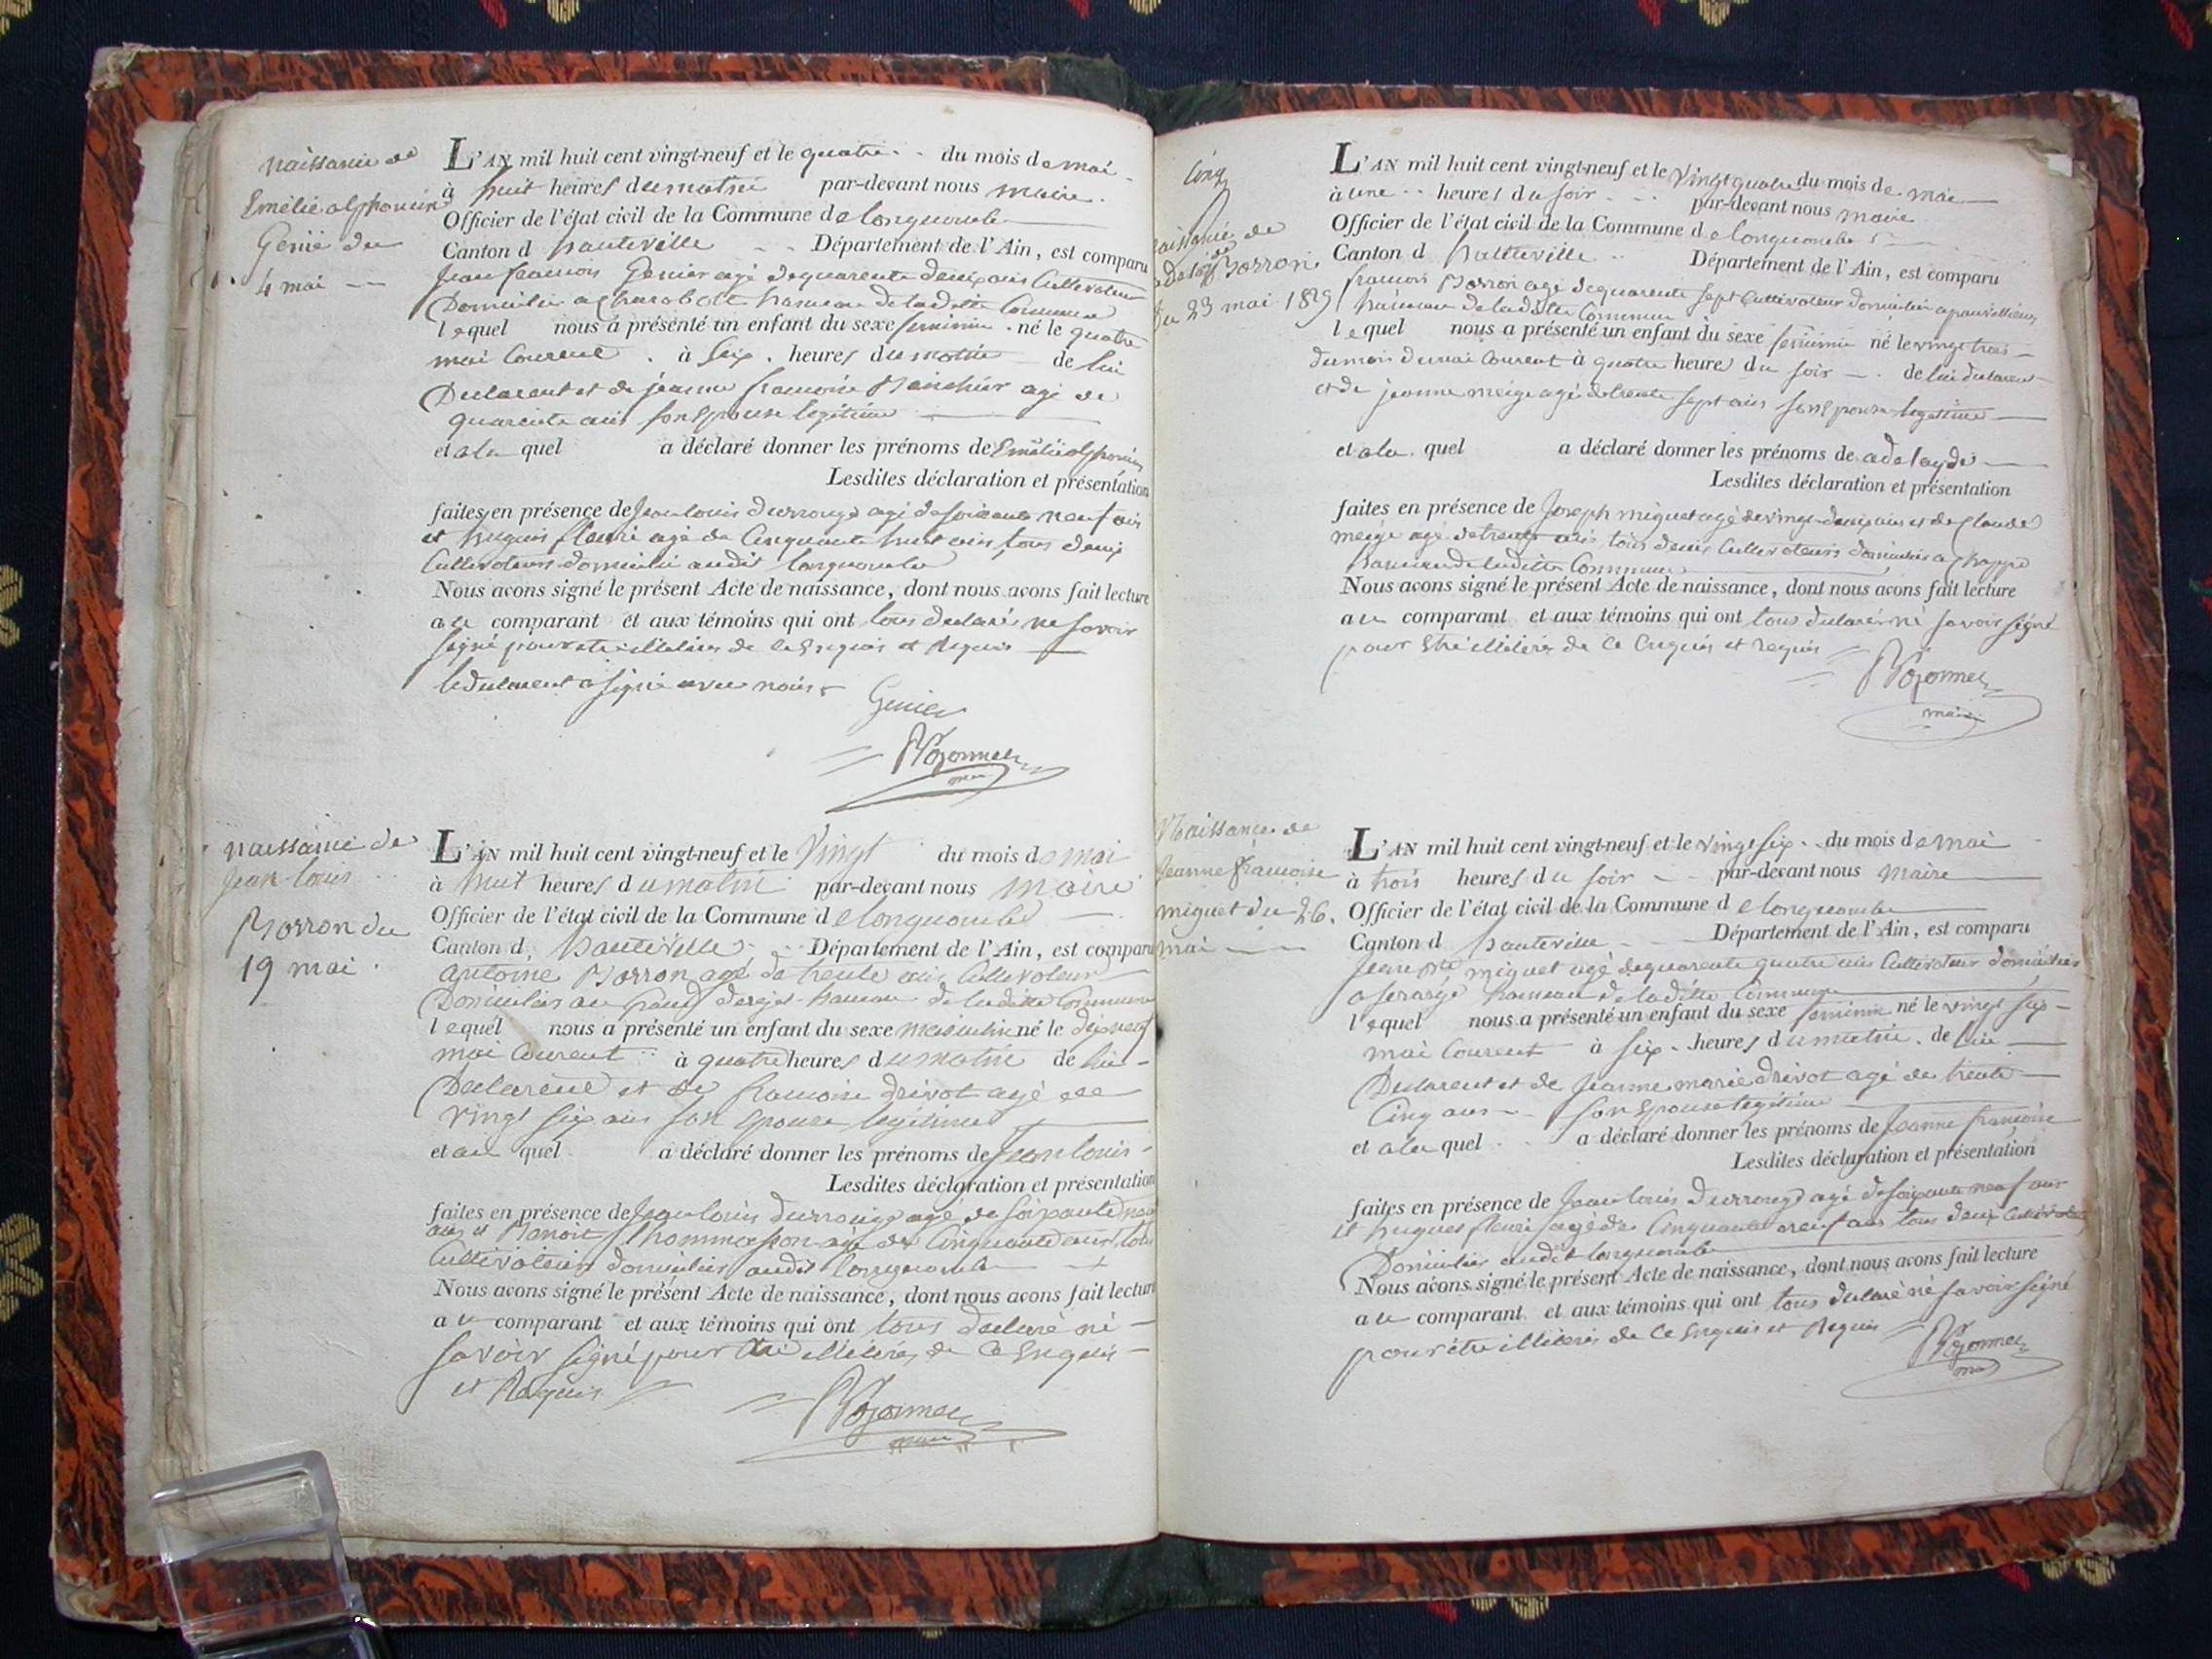 naissance de
Emélie alphonsine
Genié du
4 mai
L'AN mil huit cent vingt-neuf et le quatre du mois de mai
à huit heures du matin par-devant nous maire
Officier de l'état civil de la Commune de longecombe
Canton d hauteville Département de l'Ain, est comparu
jean francois Genier agé de quarente deux ans Cultivateur
Domicilié a Charabote hameau de la ditte Commune
lequel nous a présenté un enfant du sexe feminin né le quatre
mai Courent à Six heures du matin de lui
Declarent et de jeanne francoise agé de
quarente ans son Epouse legitime
et a la quel a déclaré donner les prénoms de Emélie alphonsine
Lesdites déclaration et présentation
faites en présence de Jean louis Durrouge agé de soixante neuf ans
et hugues fleuri agé de Cinquante huit ans tous deux
Cultivateurs domicilié audit longecombe
Nous avons signé le présent Acte de naissance, dont nous avons fait lecture
au comparant et aux témoins qui ont tous declarés ne savoir
signé pour etre illiterés de ce Enquis et Requis
le declarent a signé avec nous
Genier
naissance de
jean louis
Borron du
19 mai
L'AN mil huit cent vingt-neuf et le Vingt du mois de mai
à huit heures du matin par-devant nous maire
Officier de l'état civil de la Commune de longecombe
Canton d, hauteville Département de l'Ain, est comparu
antoine Borron agé de trente ans Cultivateur
Domicilier au hameau de la ditte Commune
lequel nous a présenté un enfant du sexe masculin né le dix neuf
mai Courent à quatre heures du matin de lui
Declarent et de francoise drivot agé de
vingt six ans son Epouse legitime
et au quel a déclaré donner les prénoms de Jean louis
Lesdites déclaration et présentation
faites en présence de Jean louis Durrouge agé de soixante neuf
ans et Benoit agé de Cinquante ans tous
Cultivateurs domicilier audit longecombe
Nous avons signé le présent Acte de naissance, dont nous avons fait lecture
au comparant et aux témoins qui ont tous declaré ne
savoir signé pour etre illiterés de ce Enquis
et Requis
maire
Cinq
naissance de
Borron
du 23 mai 1829
L'AN mil huit cent vingt-neuf et le Vingt quatre du mois de mai
à une heures du soir par-devant nous maire
Officier de l'état civil de la Commune de longecombe
Canton d hauteville Département de l'Ain, est comparu
francois Borron agé de quarente sept Cultivateur domicilier a
hameau de la ditte Commune
lequel nous a présenté un enfant du sexe feminin né le vingt trois
du mois de mai Courent à quatre heures du soir de lui declarent
et de jeanne meige agé de trente sept ans son Epouse legitime
et a la quel a déclaré donner les prénoms de adelayde
Lesdites déclaration et présentation
faites en présence de Joseph miguet agé de vingt deux ans et de Claude
meige agé de trente ans tous deux Cultivateurs domicilier a
hameau de la ditte Commune
Nous avons signé le présent Acte de naissance, dont nous avons fait lecture
au comparant et aux témoins qui ont tous declaré ne savoir signé
pour etre illiterés de ce Enquis et requis
maire
Naissance de
Jeanne francoise
miguet du 26
mai
L'AN mil huit cent vingt-neuf et le vingt six du mois de mai
à trois heures du soir par-devant nous maire
Officier de l'état civil de la Commune de longecombe
Canton d hauteville Département de l'Ain, est comparu
Jean miguet agé de quarente quatre ans Cultivateur domicilier
a hameau de la ditte Commune
lequel nous a présenté un enfant du sexe feminin né le vingt six
mai Courent à six heures du matin de lui
Declarent et de Jeanne marie drivot agé de trente
Cinq ans son Epouse legitime
et a la quel a déclaré donner les prénoms de Jeanne francoise
Lesdites déclaration et présentation
faites en présence de Jean louis Durrouge agé de soixante neuf ans
et hugues fleuri agé de Cinquante neuf ans tous deux Cultivateurs
Domicilier audit longecombe
Nous avons signé le présent Acte de naissance, dont nous avons fait lecture
au comparant et aux témoins qui ont tous declaré ne savoir signé
pour etre illiterés de ce Enquis et Requis